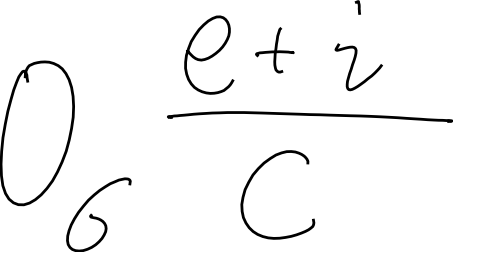 0₆ \frac{e+i}{C}